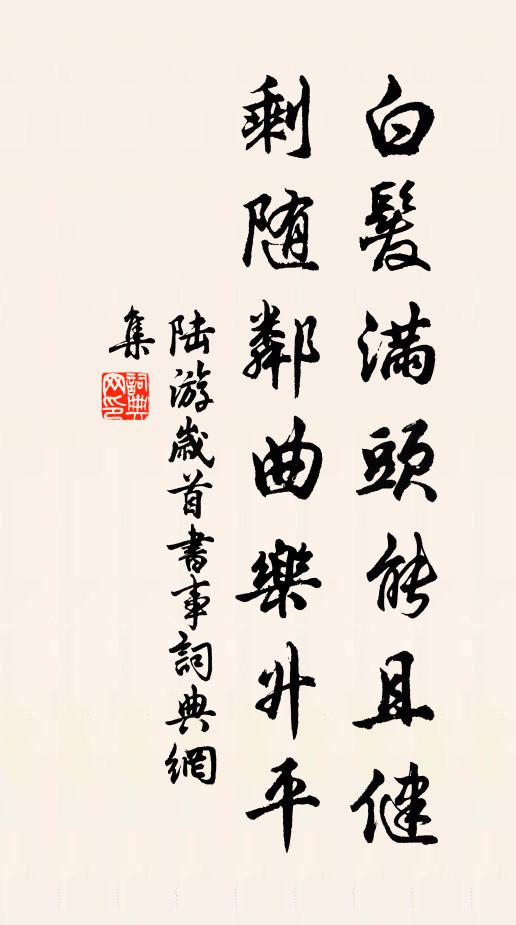 白髮滿頭能且健
剩随鄰曲樂升平
陆游歲首書事詞典網
集
詞典
网印